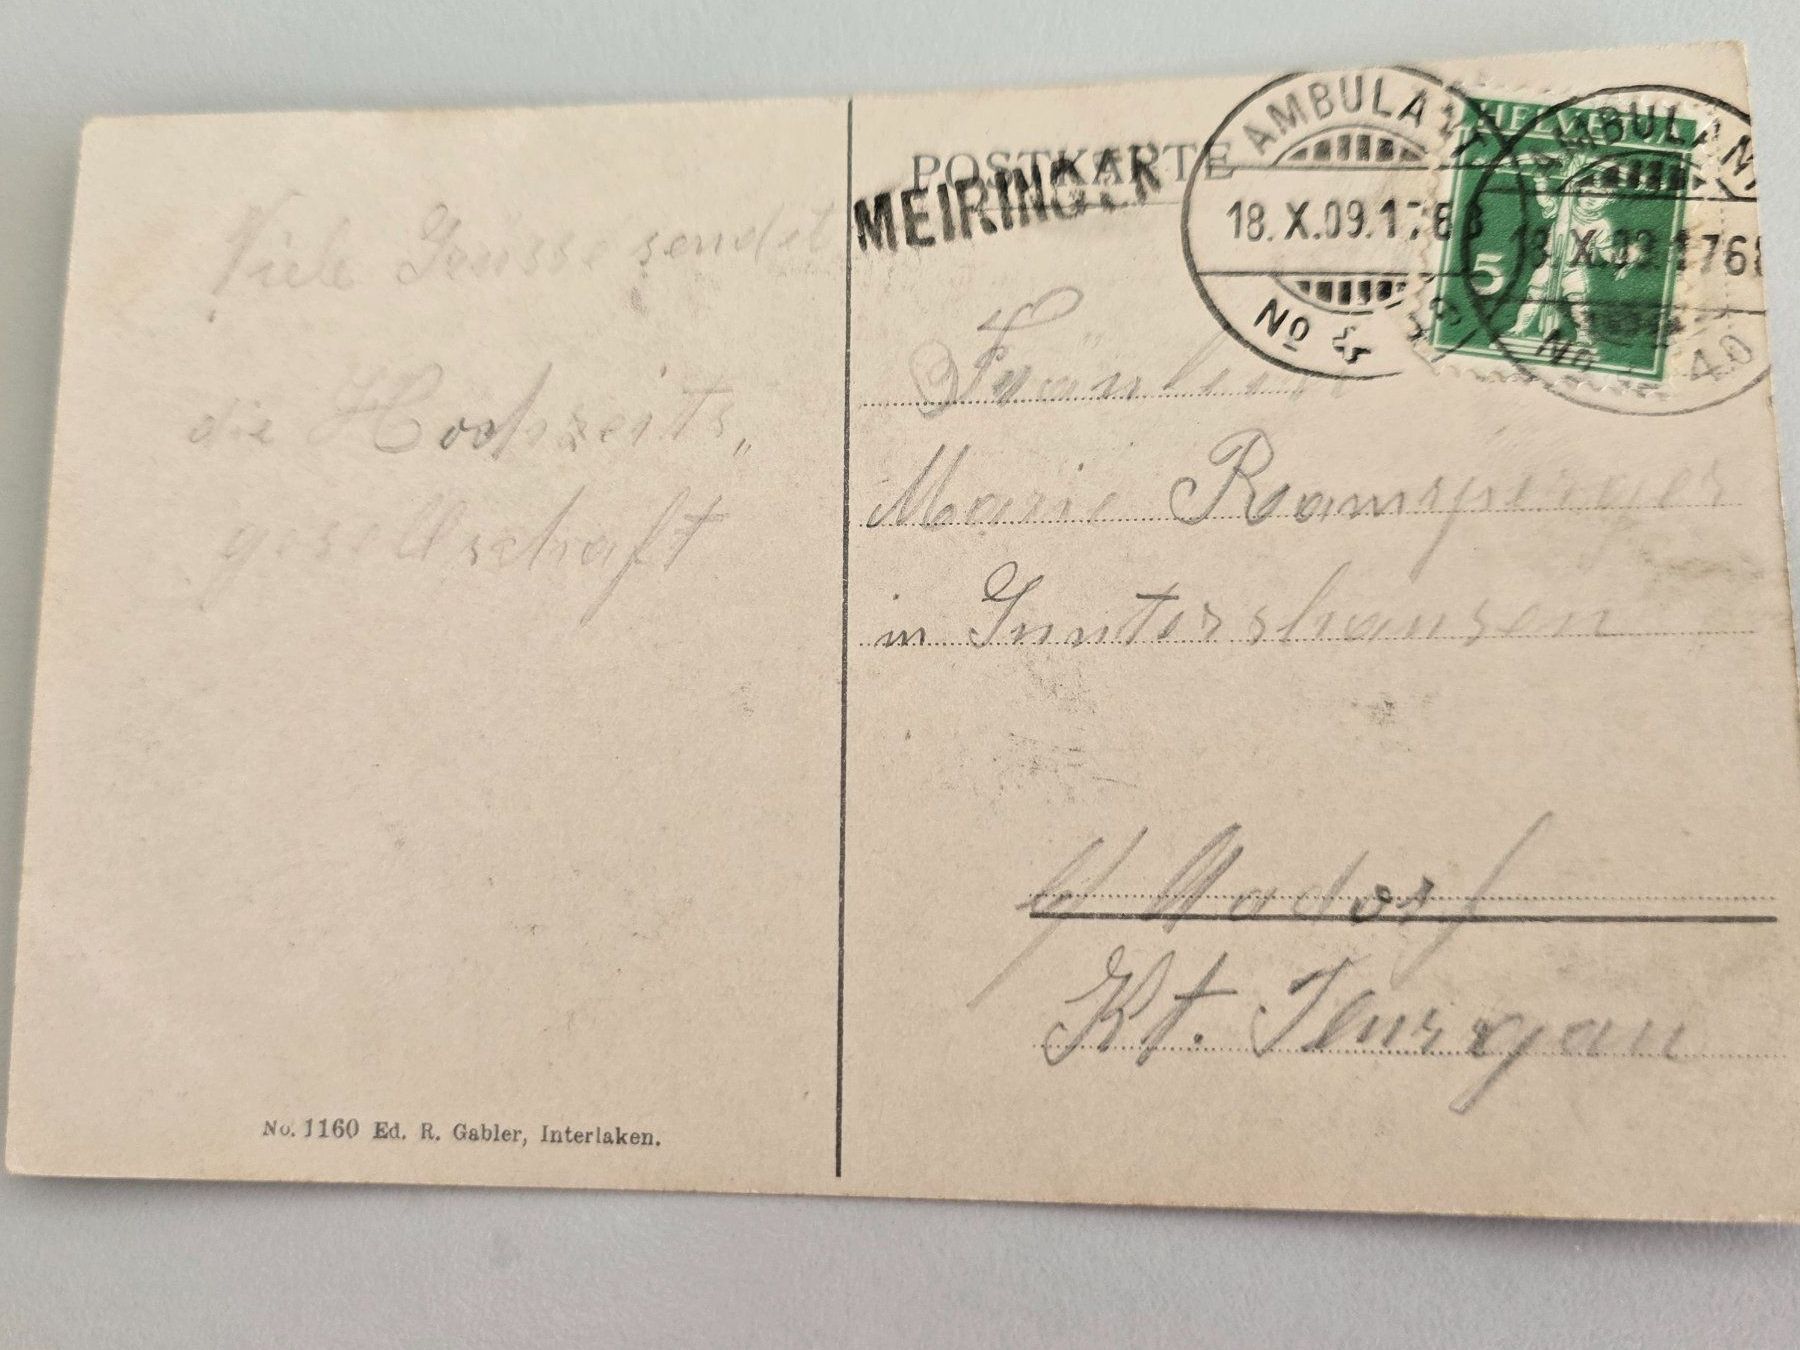 Viele Grüsse sendet
die Hochzeits„
gesellschaft
No. 1160 Ed. R. Gabler, Interlaken.
POSTKARTE
MEIRINGEN
AMBULANT
18.X.09.17 6
No
HELVETIA
5
AMBULANT
18.X.09.17 61
No 40
Fräulein
Marie Ramsperger
in Guntershausen
b/ Aadorf
Kt. Thurgau